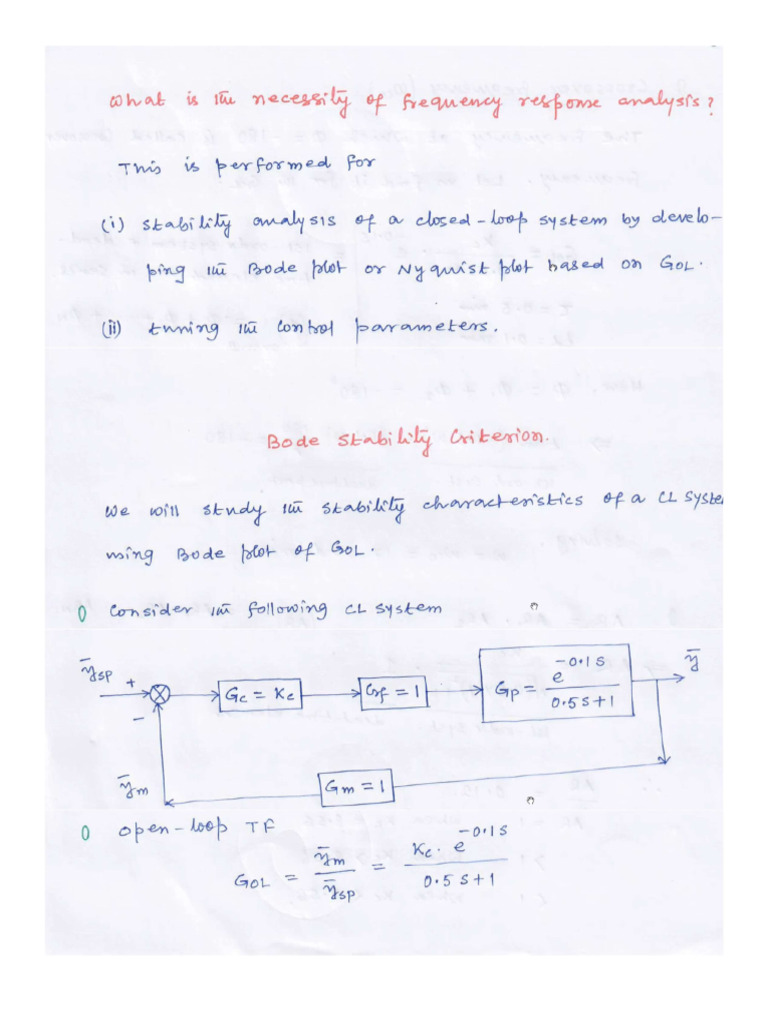 What is the necessity of frequency response analysis?
This is performed for
(i) stability analysis of a closed-loop system by develo-
ping the Bode plot or Nyquist plot based on GOL.
(ii) tuning the control parameters.
Bode Stability Criterion.
We will study the stability characteristics of a CL syste
using Bode plot of GOL.
0 Consider the following CL system
ȳsp + − Gc = Kc Gf = 1 Gp = e^-0.1s / 0.5s+1 ȳ
ȳm Gm = 1
0 open-loop TF
GOL = ȳm / ȳsp = Kc. e^-0.1s / 0.5s+1